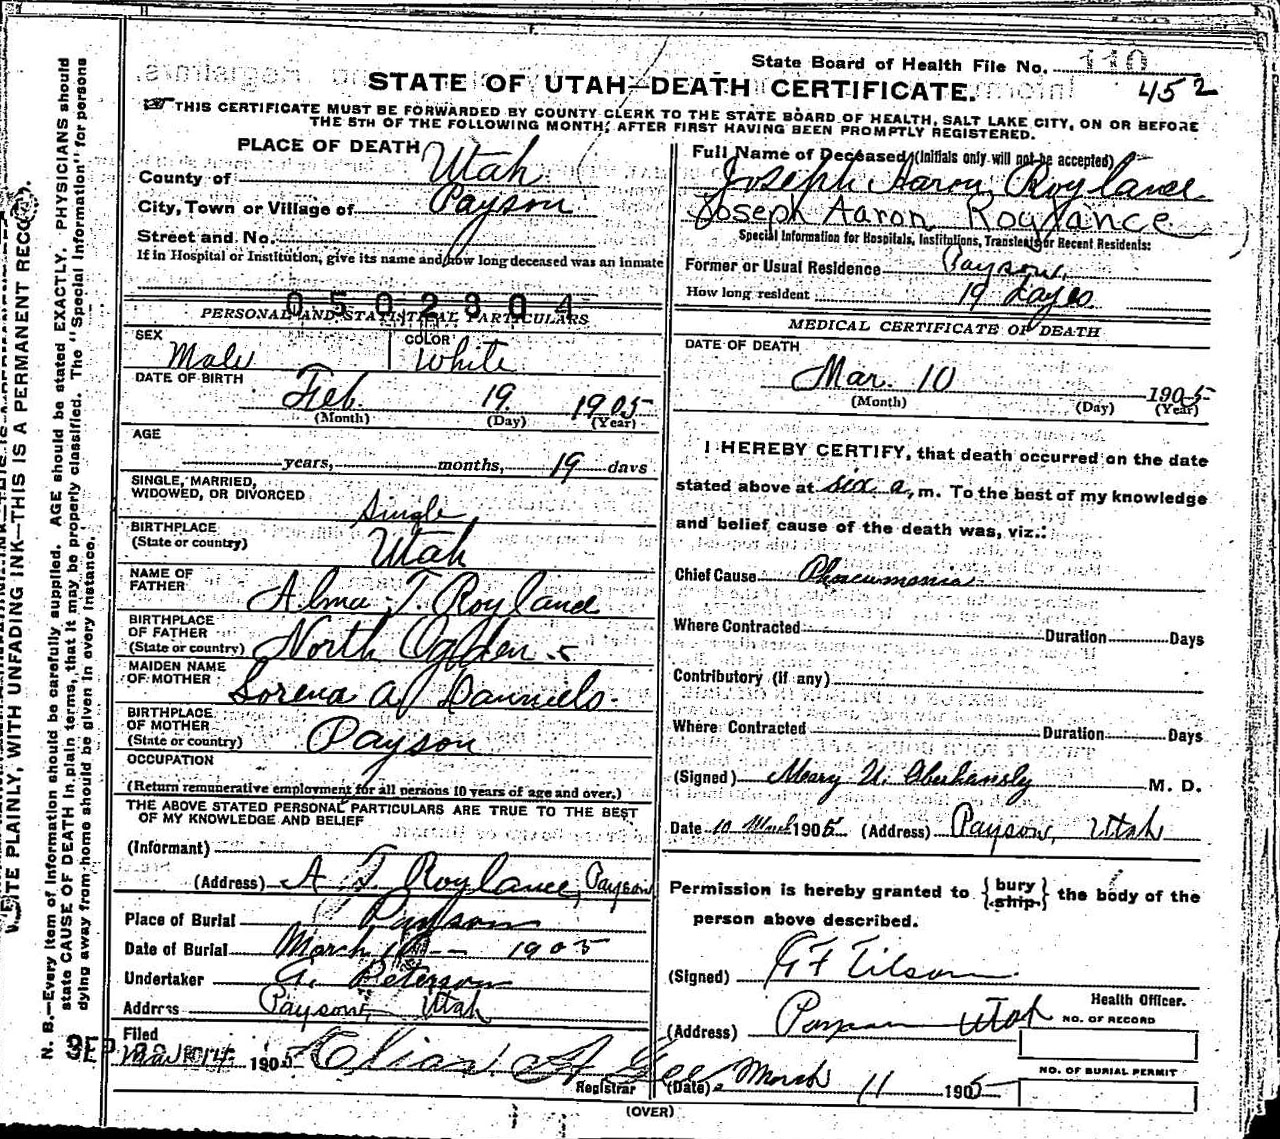 State Board of Health File No. 110
452
STATE OF UTAH—DEATH CERTIFICATE.
THIS CERTIFICATE MUST BE FORWARDED BY COUNTY CLERK TO THE STATE BOARD OF HEALTH, SALT LAKE CITY, ON OR BEFORE
THE 5TH OF THE FOLLOWING MONTH, AFTER FIRST HAVING BEEN PROMPTLY REGISTERED.
PLACE OF DEATH
County of Utah
City, Town or Village of Payson
Street and No.
If in Hospital or Institution, give its name and how long deceased was an inmate
0502304
PERSONAL AND STATISTICAL PARTICULARS
SEX Male
COLOR White
DATE OF BIRTH Feb. 19. 1905
(Month) (Day) (Year)
AGE
years, months, 19 days
SINGLE, MARRIED,
WIDOWED, OR DIVORCED Single
BIRTHPLACE
(State or country) Utah
NAME OF
FATHER Alma T. Roylance
BIRTHPLACE
OF FATHER
(State or country) North Ogden
MAIDEN NAME
OF MOTHER Lorena A. Daniels
BIRTHPLACE
OF MOTHER
(State or country) Payson
OCCUPATION
(Return remunerative employment for all persons 10 years of age and over.)
THE ABOVE STATED PERSONAL PARTICULARS ARE TRUE TO THE BEST
OF MY KNOWLEDGE AND BELIEF
(Informant)
(Address) A T. Roylance, Payson
Place of Burial Payson
Date of Burial March 1905
Undertaker Peterson
Address Payson, Utah
Filed
Mar 14 1905 Elias A Gee
Registrar
Full Name of Deceased (Initials only will not be accepted)
Joseph Aaron Roylance
Joseph Aaron Roylance
Special Information for Hospitals, Institutions, Transients or Recent Residents:
Former or Usual Residence Payson
How long resident 19 days
MEDICAL CERTIFICATE OF DEATH
DATE OF DEATH
Mar. 10 1905
(Month) (Day) (Year)
I HEREBY CERTIFY, that death occurred on the date
stated above at six a, m. To the best of my knowledge
and belief cause of the death was, viz.:
Chief Cause
Where Contracted Duration Days
Contributory (if any)
Where Contracted Duration Days
(Signed) Oberhansly M. D.
Date 10 March 1905 (Address) Payson, Utah
Permission is hereby granted to {bury ship} the body of the
person above described.
(Signed) Tilson
Health Officer.
(Address) Payson Utah
NO. OF RECORD
NO. OF BURIAL PERMIT
(Date) March 11 1905
(OVER)
WRITE PLAINLY, WITH UNFADING INK—THIS IS A PERMANENT RECORD.
N. B.—Every item of information should be carefully supplied. AGE should be stated EXACTLY. PHYSICIANS should
state CAUSE OF DEATH in plain terms, that it may be properly classified. The "Special Information" for persons
dying away from home should be given in every instance.